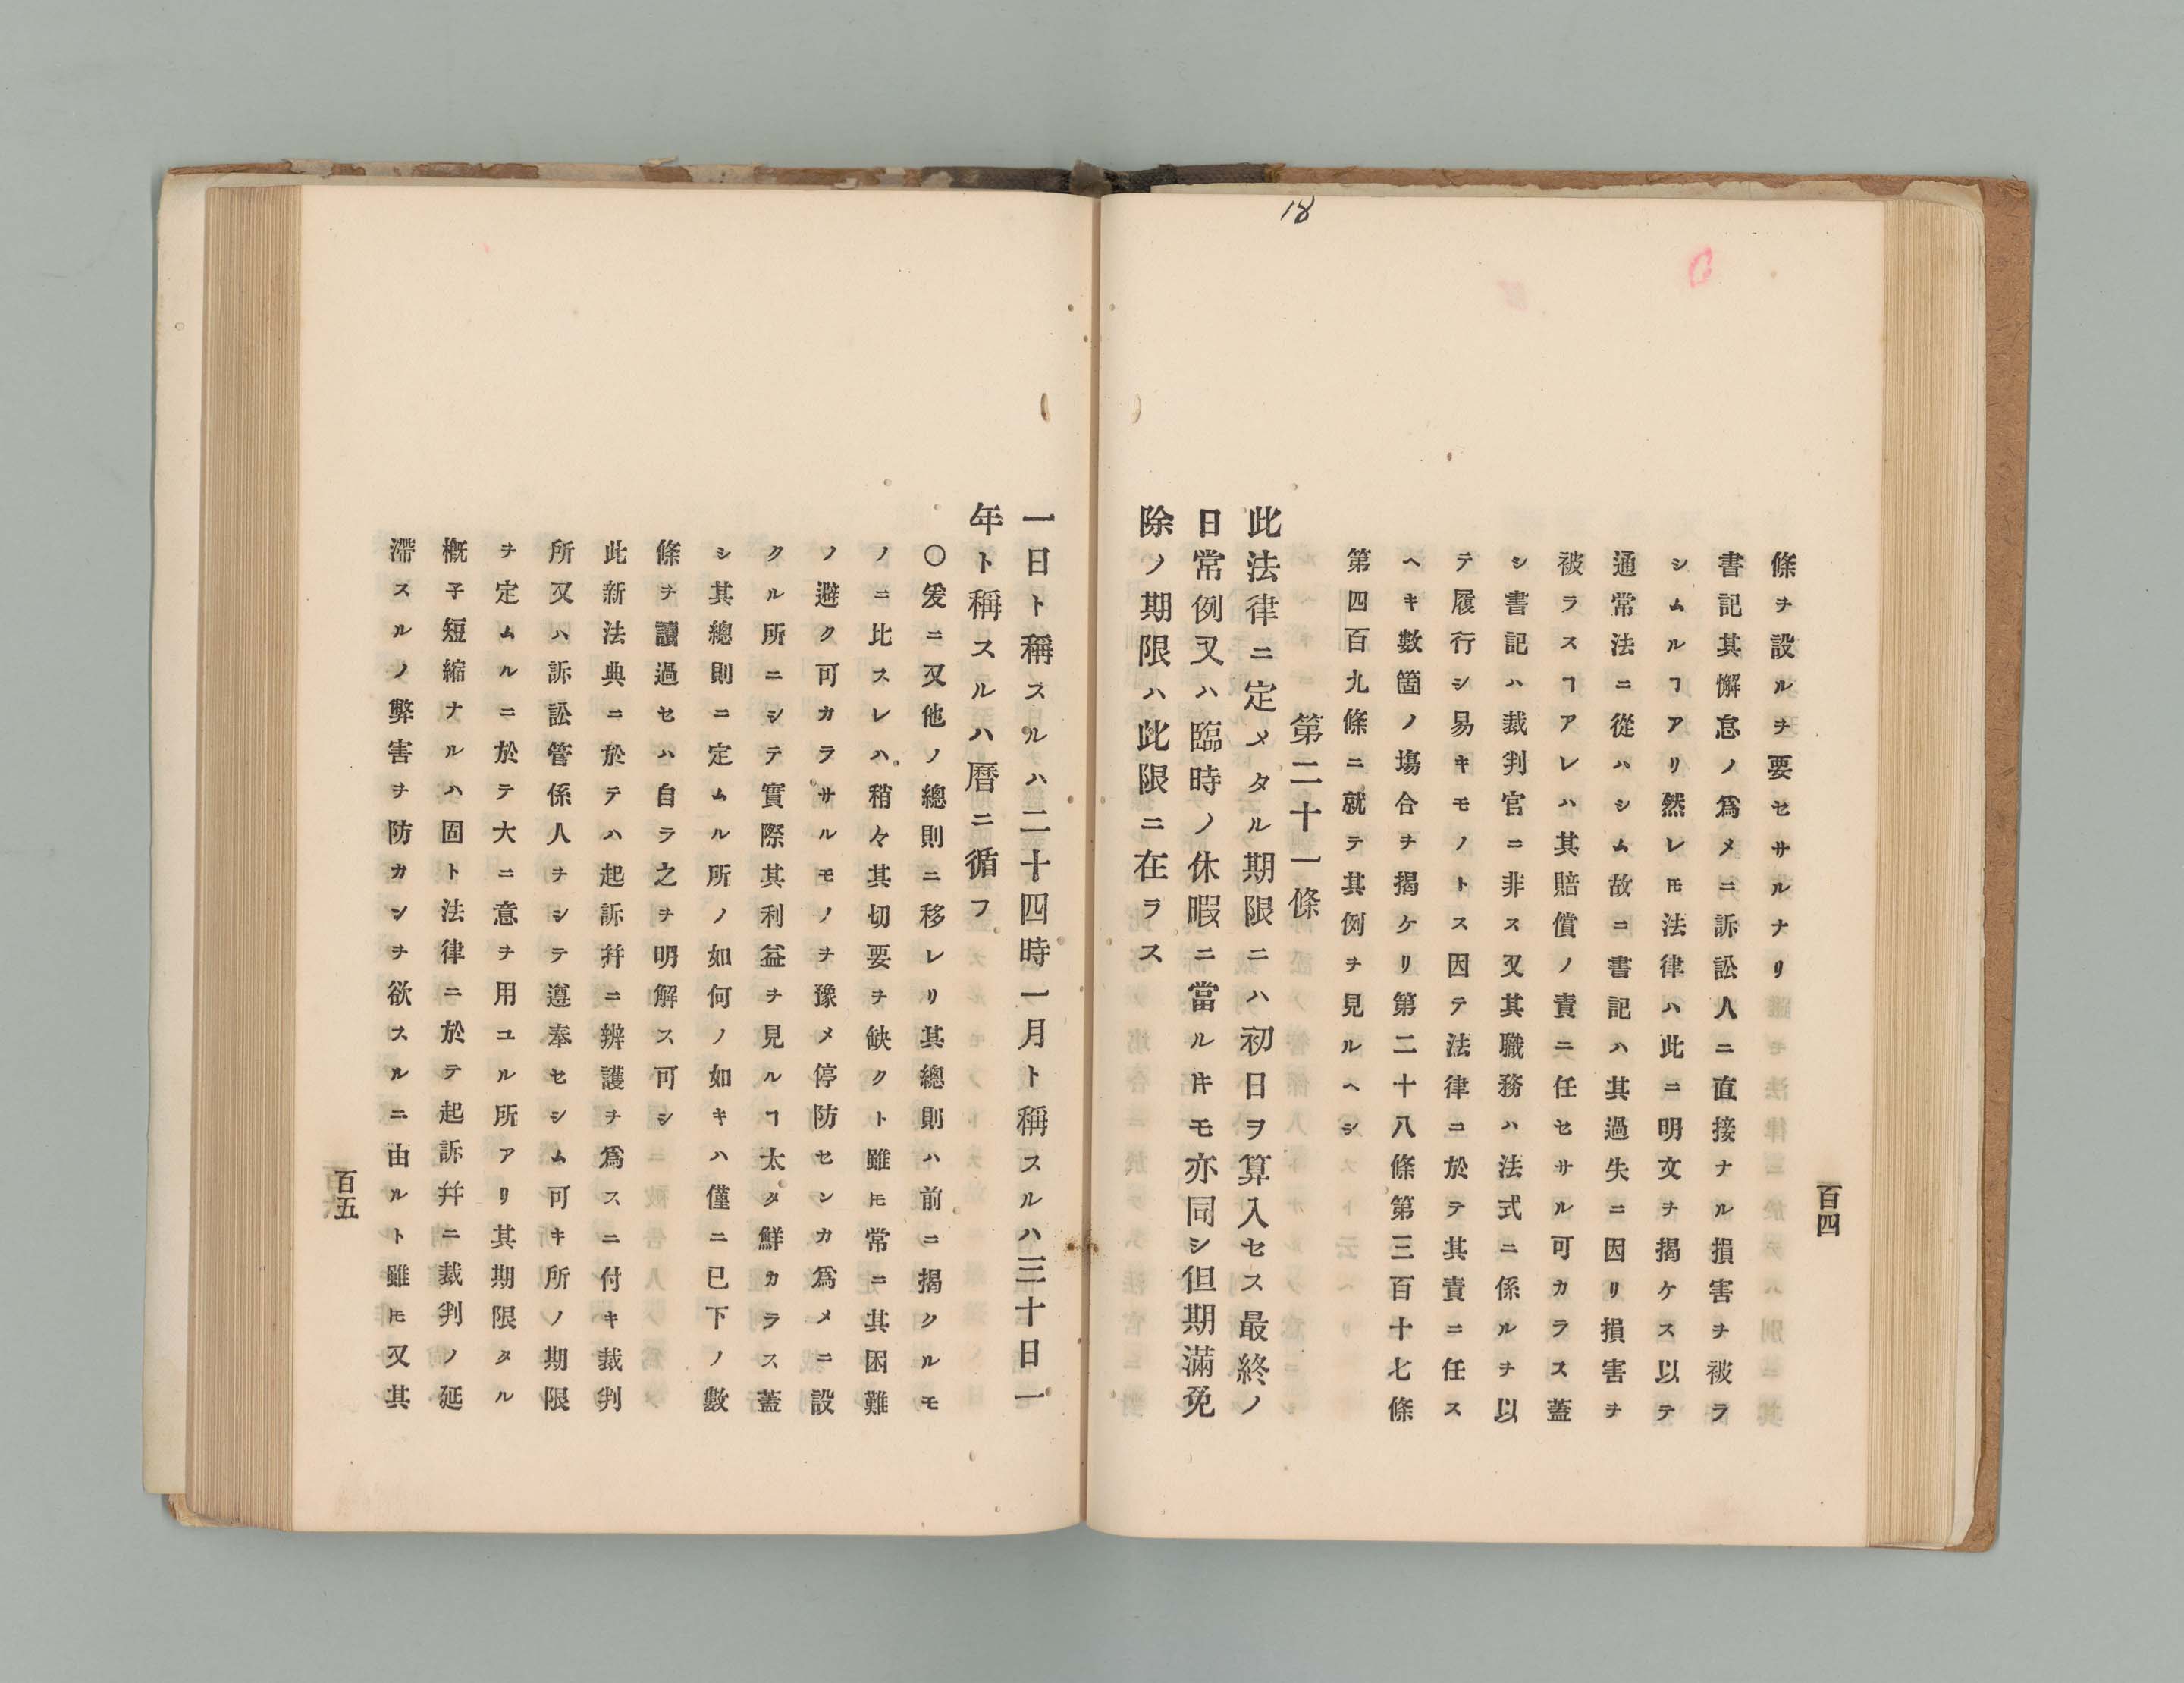 18
條ヲ設ルヲ要セサルナリ
書記其懈怠ノ爲メニ訴訟人ニ直接ナル損害ヲ被ラ
シムルヿアリ然レ𪜈法律ハ此ニ明文ヲ揭ケス以テ
通常法ニ從ハシム故ニ書記ハ其過失ニ因リ損害ヲ
被ラスヿアレハ其賠償ノ責ニ任セサル可カラス蓋
シ書記ハ裁判官ニ非ス又其職務ハ法式ニ係ルヲ以
テ履行シ易キモノトス因テ法律ニ於テ其責ニ任ス
ヘキ數箇ノ塲合ヲ揭ケリ第二十八條第三百十七條
第四百九條ニ就テ其例ヲ見ルヘシ
第二十一條
此法律ニ定メタル期限ニハ初日ヲ算入セス最終ノ
日常例又ハ臨時ノ休暇ニ當ル𪜈モ亦同シ但期滿免
除ノ期限ハ此限ニ在ラス
百四
一日ト稱スルハ二十四時一月ト稱スルハ三十日一
年ト稱スルハ曆ニ循フ
〇爰ニ又他ノ總則ニ移レリ其總則ハ前ニ揭クルモ
ノニ比スレハ稍々其切要ヲ缺クト雖𪜈常ニ其困難
ノ避ク可カラサルモノヲ豫メ停防センカ爲メニ設
クル所ニシテ實際其利益ヲ見ルヿ太タ鮮カラス蓋
シ其總則ニ定ムル所ノ如何ノ如キハ僅ニ已下ノ數
條ヲ讀過セハ自ラ之ヲ明解ス可シ
此新法典ニ於テハ起訴幷ニ辨護ヲ爲スニ付キ裁判
所又ハ訴訟管係人ヲシテ遵奉セシム可キ所ノ期限
ヲ定ムルニ於テ大ニ意ヲ用ユル所アリ其期限タル
概子短縮ナルハ固ト法律ニ於テ起訴幷ニ裁判ノ延
滯スルノ弊害ヲ防カンヲ欲スルニ由ルト雖𪜈又其
百五